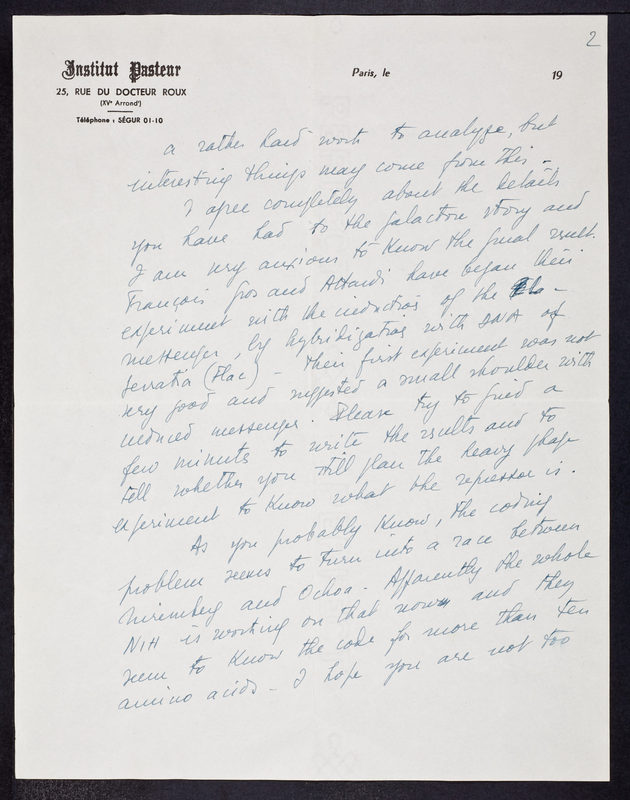 2
Institut Pasteur
25, RUE DU DOCTEUR ROUX
(XVe Arrondt)
Téléphone : SÉGUR 01-10
Paris, le 19
a rather hard work to analyze, but
interesting things may come from this -
I agree completely about the details
you have had to the galactose story and
I am very anxious to know the final result.
François Gros and Attardi have began their
experiment with the induction of the
messenger, by hybridization with DNA of
Serratia (Flac) - their first experiment was not
very good and suggested a small shoulder with
induced messenger. Please try to find a
few minutes to write the results and to
tell whether you still plan the heavy phage
experiment to know what the repressor is.
As you probably know, the coding
problem seems to turn into a race between
Nirenberg and Ochoa. Apparently the whole
NIH is working on that now and they
seem to know the code for more than ten
amino acids - I hope you are not too